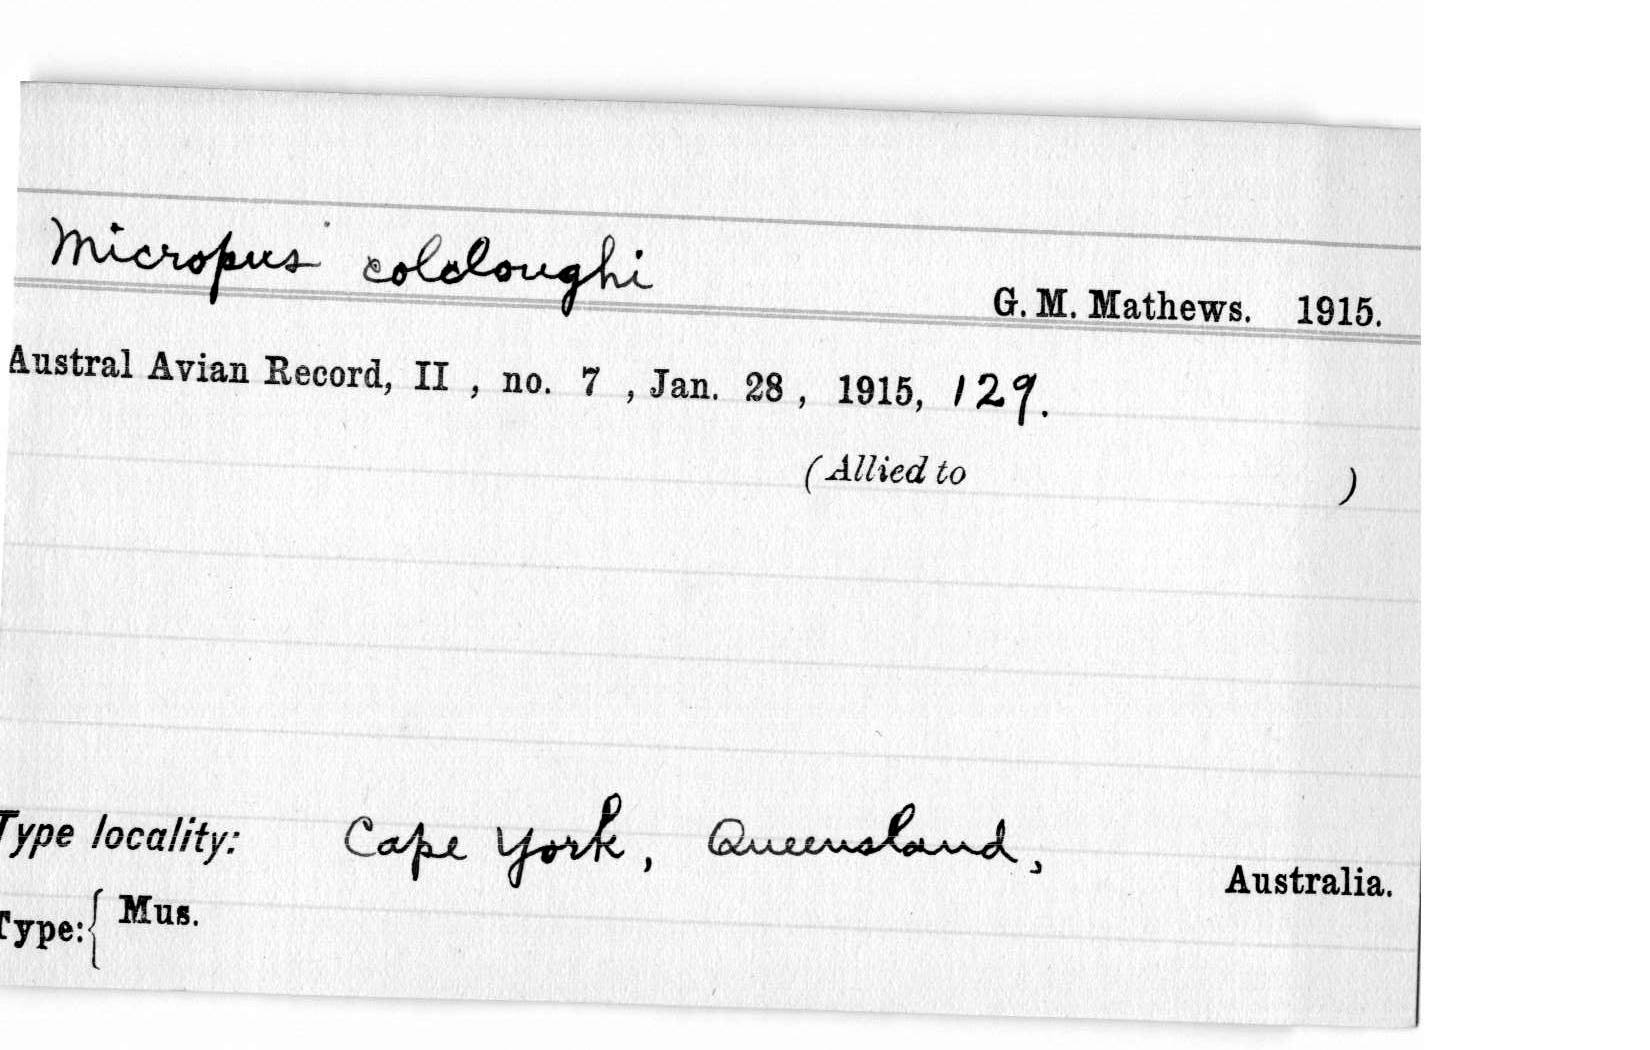 Micropus colcloughi
G. M. Mathews. 1915.
Austral Avian Record, II , no. 7 , Jan. 28 , 1915, 129.
(Allied to )
Type locality: Cape York, Queensland,
Australia.
Type: { Mus.